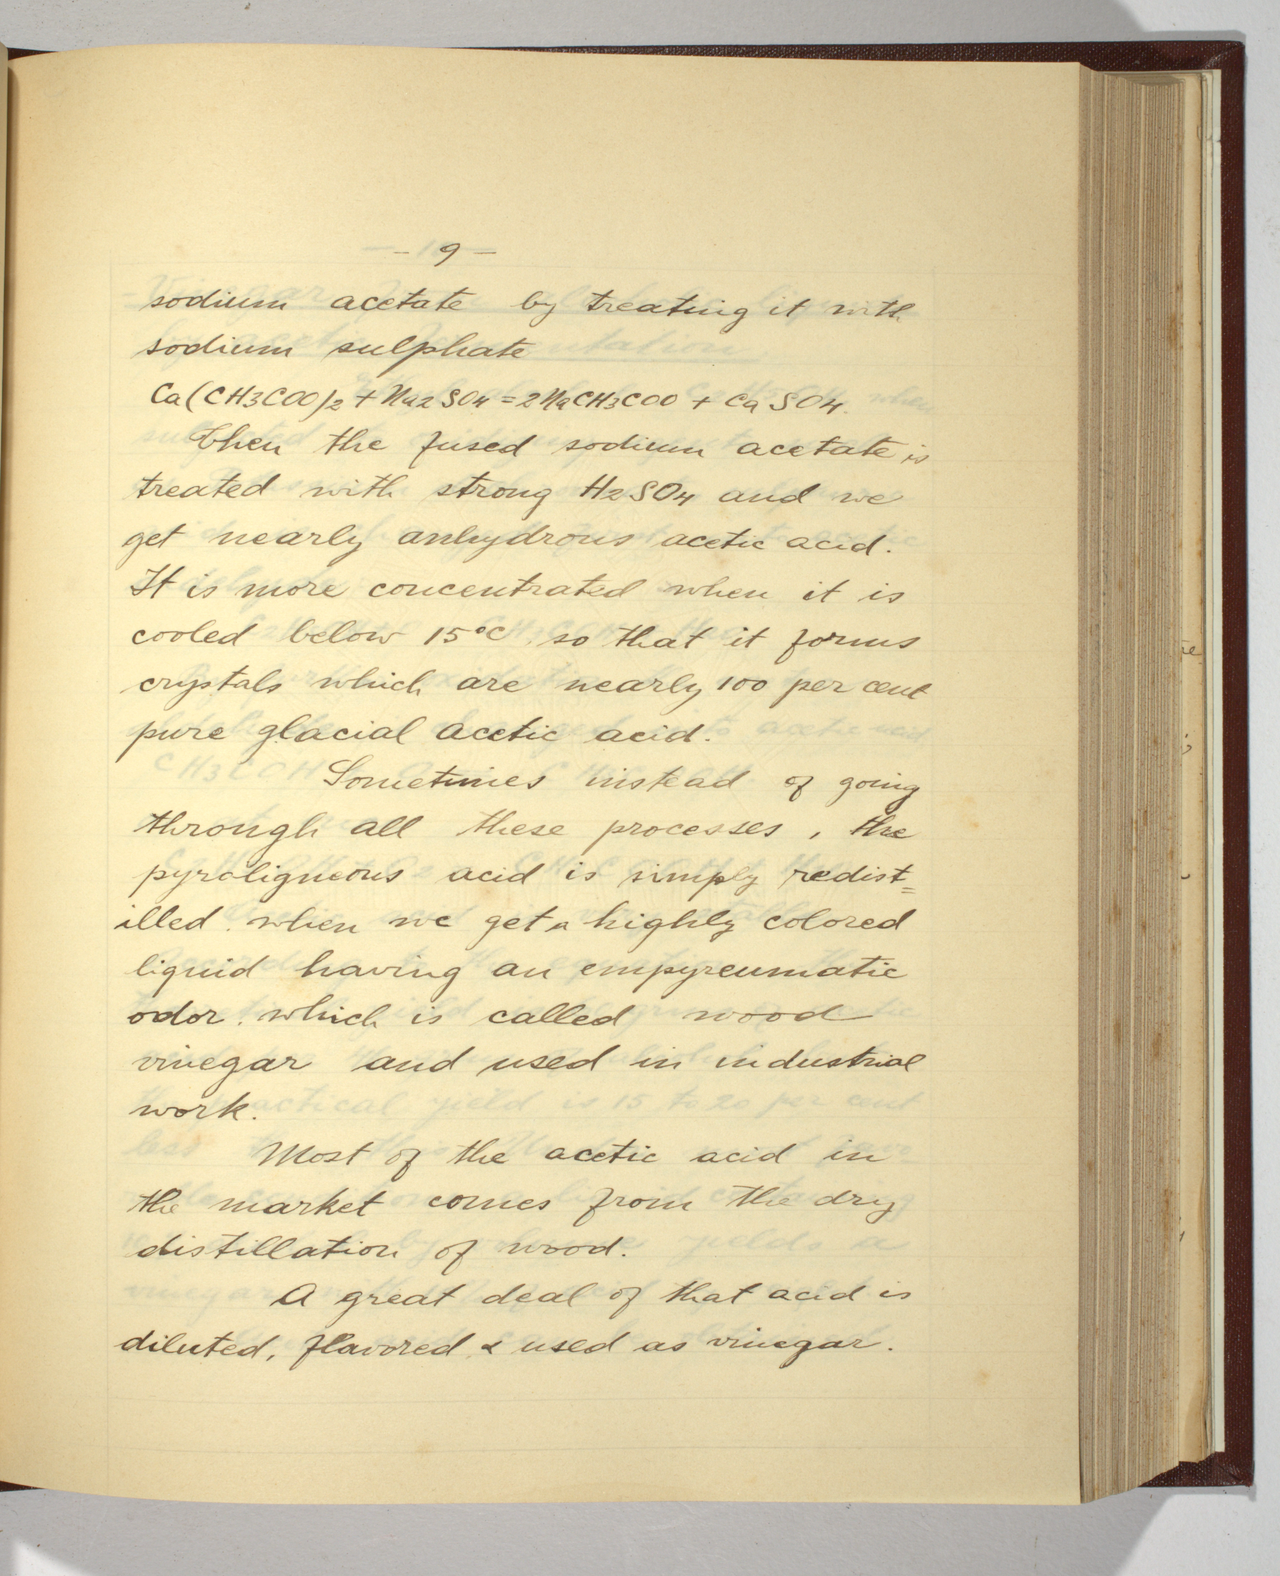 - 9 -
sodium acetate by treating it with
sodium sulphate
Ca(CH3COO)2 + Na2SO4 = 2NaCH3COO + CaSO4.
Then the fused sodium acetate is
treated with strong H2SO4 and we
get nearly anhydrous acetic acid.
It is more concentrated when it is
cooled below 15°C. so that it forms
crystals which are nearly 100 per cent
pure glacial acetic acid.
Sometimes instead of going
through all these processes, the
pyroligneous acid is simply redist=
illed. when we get a highly colored
liquid having an empyreumatic
odor. which is called wood
vinegar and used in industrial
work.
Most of the acetic acid in
the market comes from the dry
distillation of wood.
A great deal of that acid is
diluted, flavored & used as vinegar.